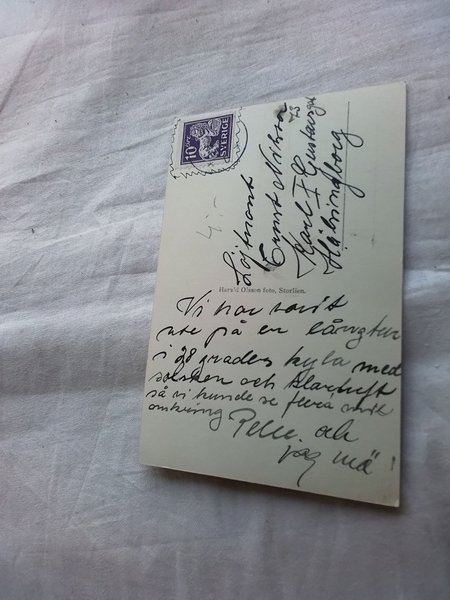 10 ÖRE
SVERIGE
4:-
Löjtnant
Ernst Nilsson
Karl X Gustavsgt
73
Hälsingborg
Harald Olsson foto, Storlien.
Vi har varit
ute på en långtur
i 28 graders kyla med
solsken och klarluft
så vi kunde se flera mil
omkring
Pelle och
jag må !